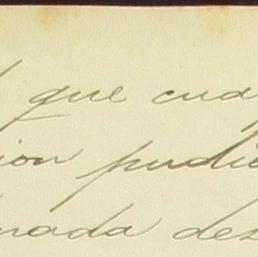 que cua
ion pudie
nada des